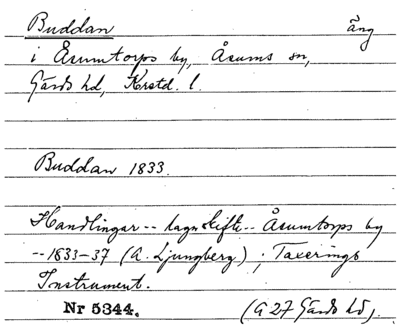 Buddan äng
i Åsumtorps by, Åsums sn,
Gärds hd, Krstd. l.
Buddan 1833.
Handlingar -- lagaskifte -- Åsumtorps by
-- 1833-37 (A. Ljungberg); Taxerings
Instrument.
Nr 5344. (G 27 Gärds hd).